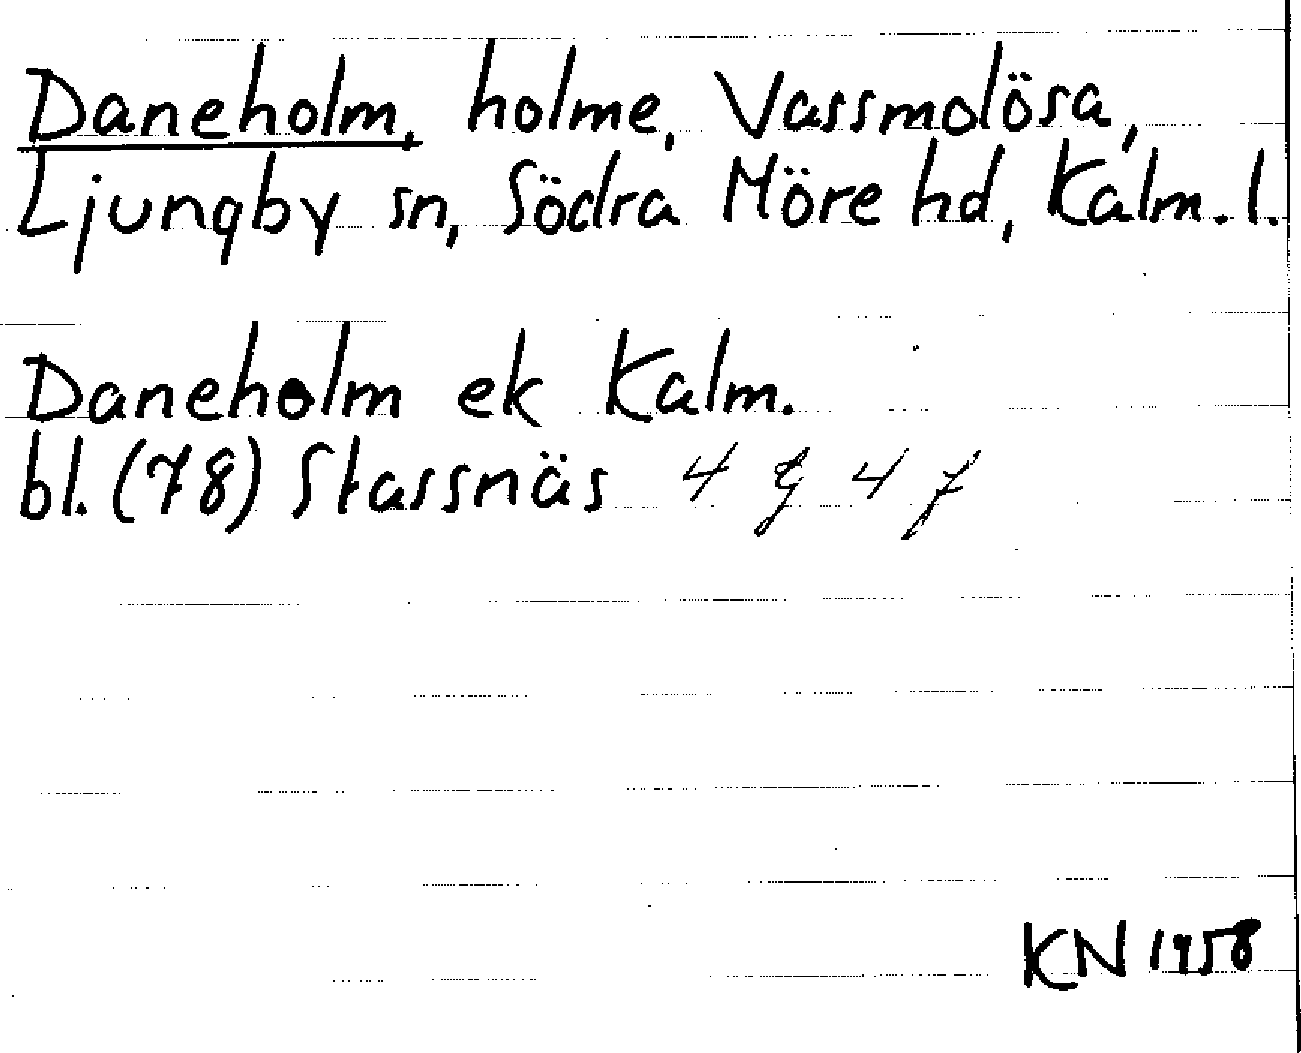 Daneholm, holme, Vassmolösa,
Ljungby sn, Södra Möre hd, Kalm. l.
Daneholm ek Kalm.
bl. (78) Stassnäs 4 g 4 f
KN 1958